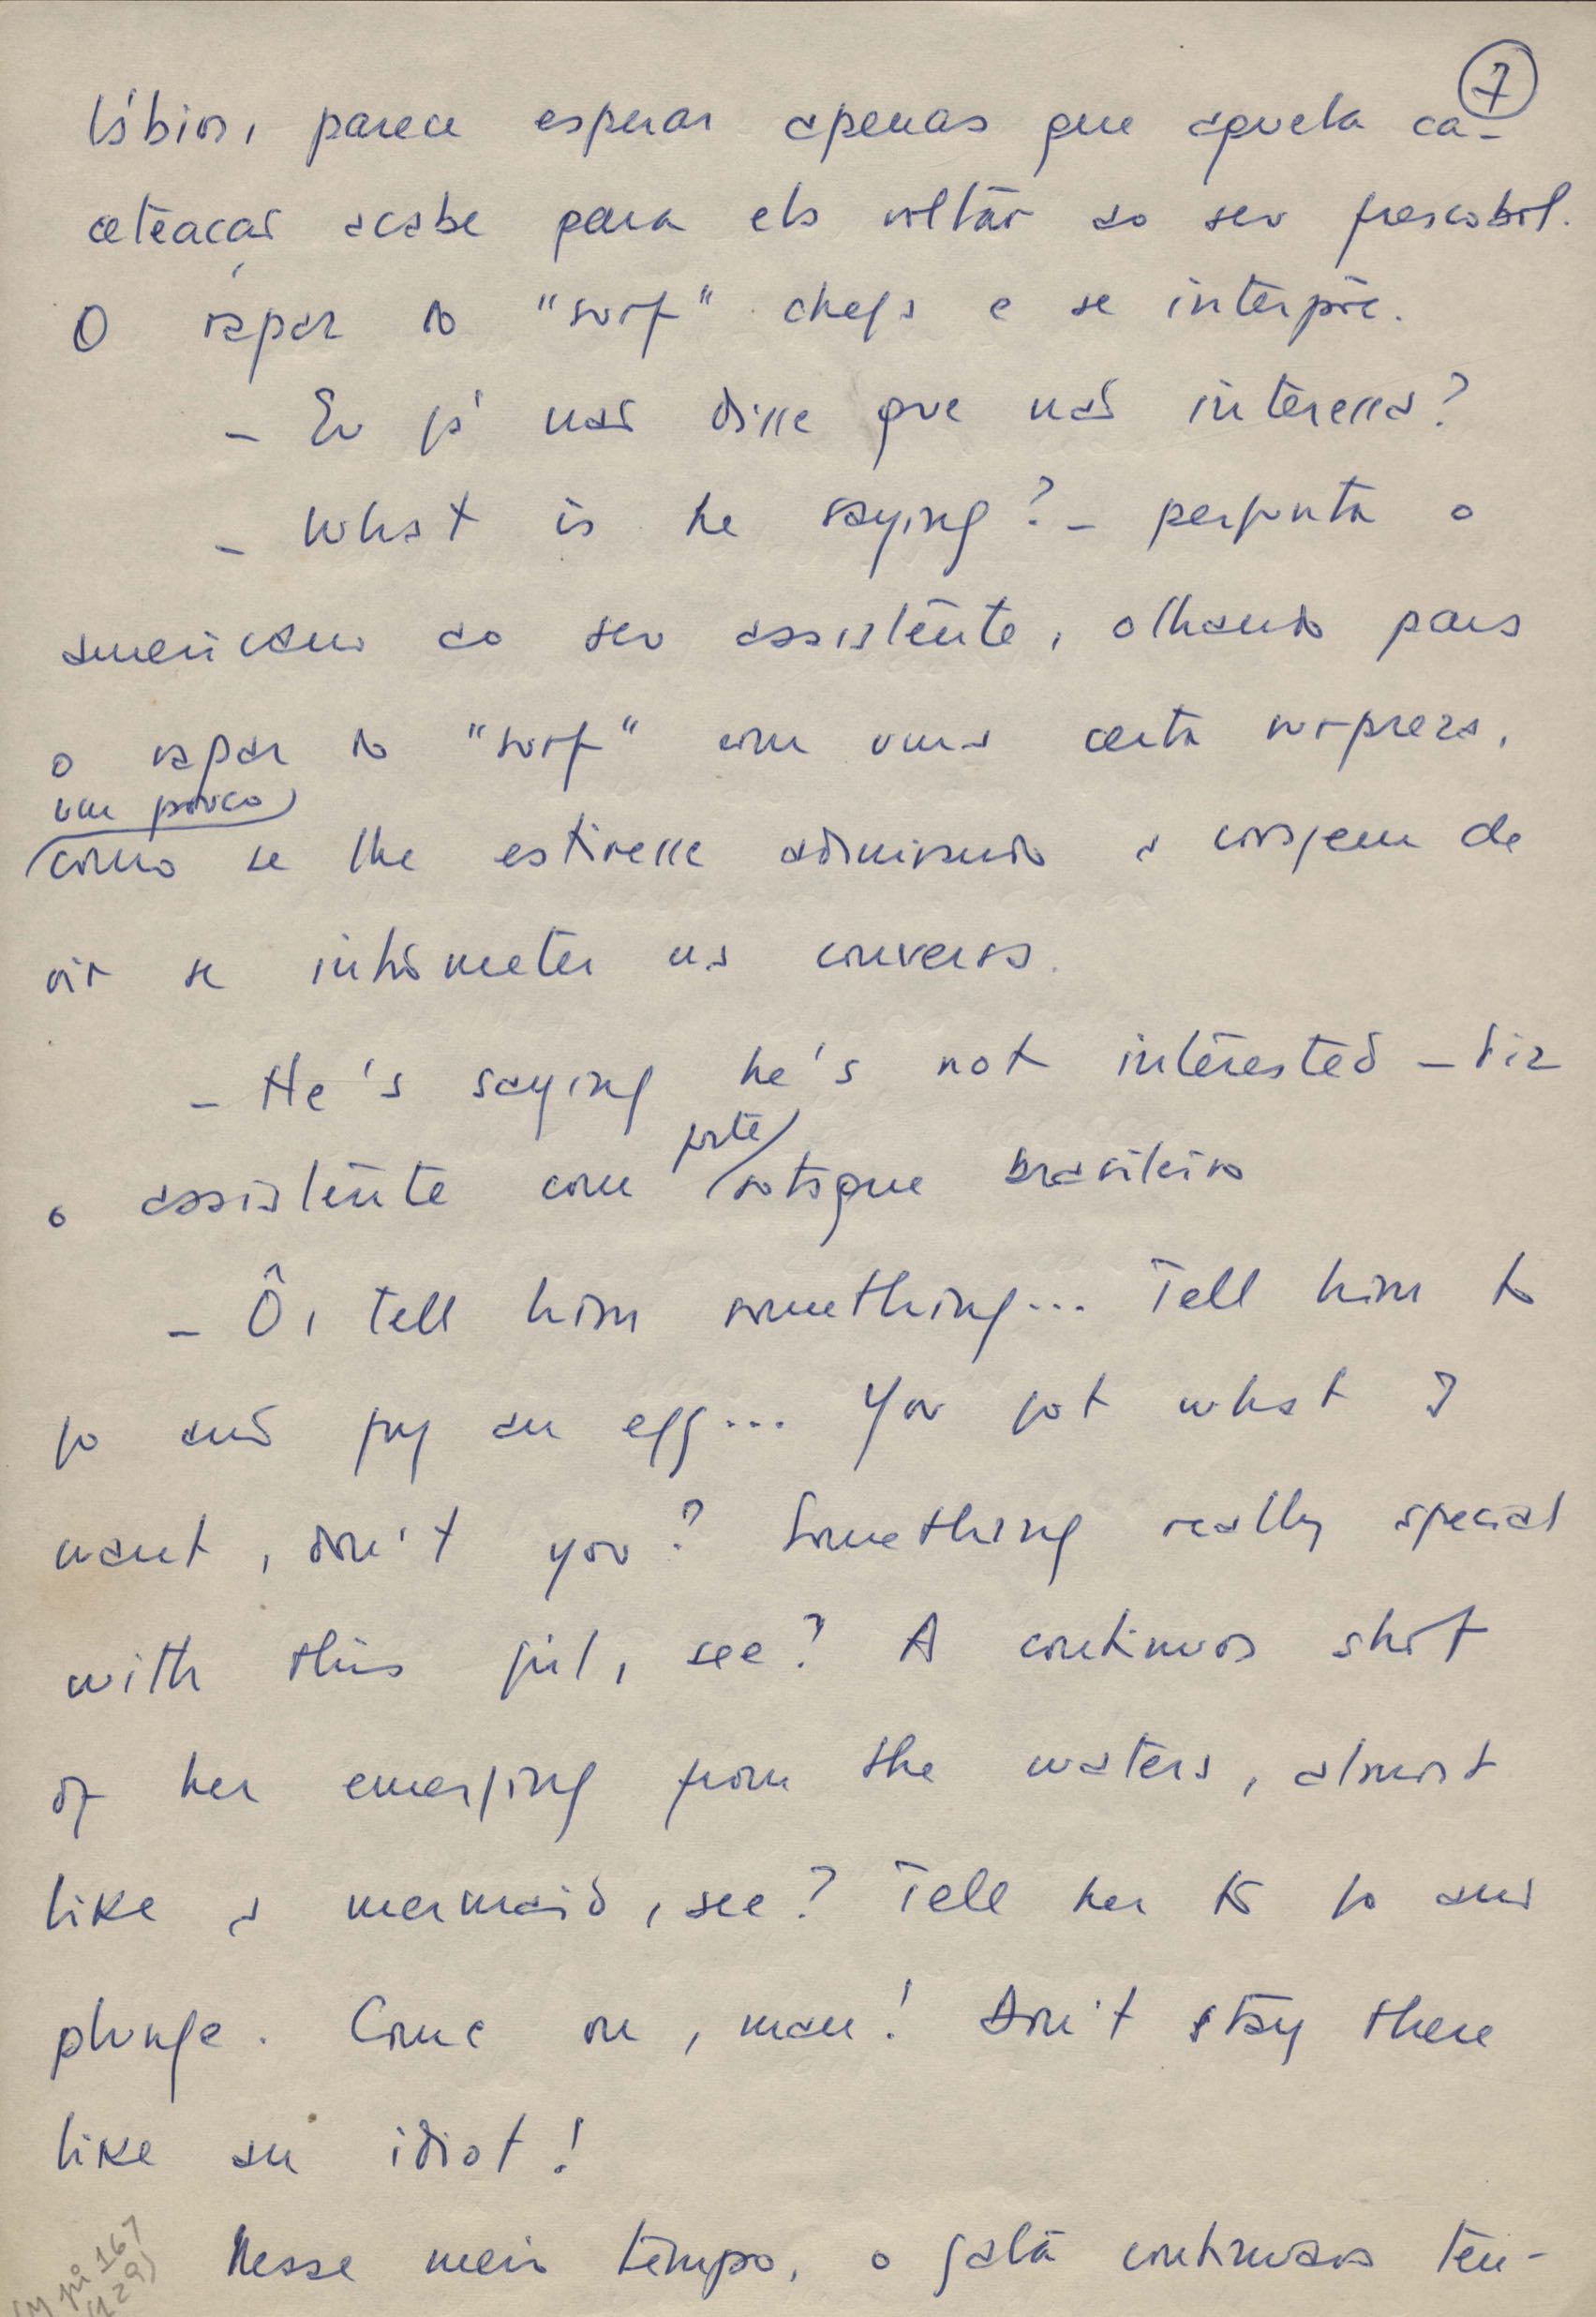 7
lábios, parece esperar apenas que aquela ca-
ceteação acabe para ela voltar ao seu frescobol.
O rapaz do "surf" chega e se interpõe.
– Eu já não disse que não interessa?
– What is he saying? – pergunta o
americano ao seu assistente, olhando para
o rapaz do "surf" com uma certa surpresa,
um pouco
como se lhe estivesse admirando a coragem de
vir se intrometer na conversa.
– He's saying he's not interested – diz
forte
o assistente com sotaque brasileiro
– Ô, tell him something... Tell him to
go and fry an egg... You got what I
want, don't you? Something really special
with this girl, see? A continuos shot
of her emerging from the waters, almost
like a mermaid, see? Tell her to go and
plunge. Come on, man! Don't stay there
like an idiot!
Nesse meio tempo, o galã continuara ten-
167